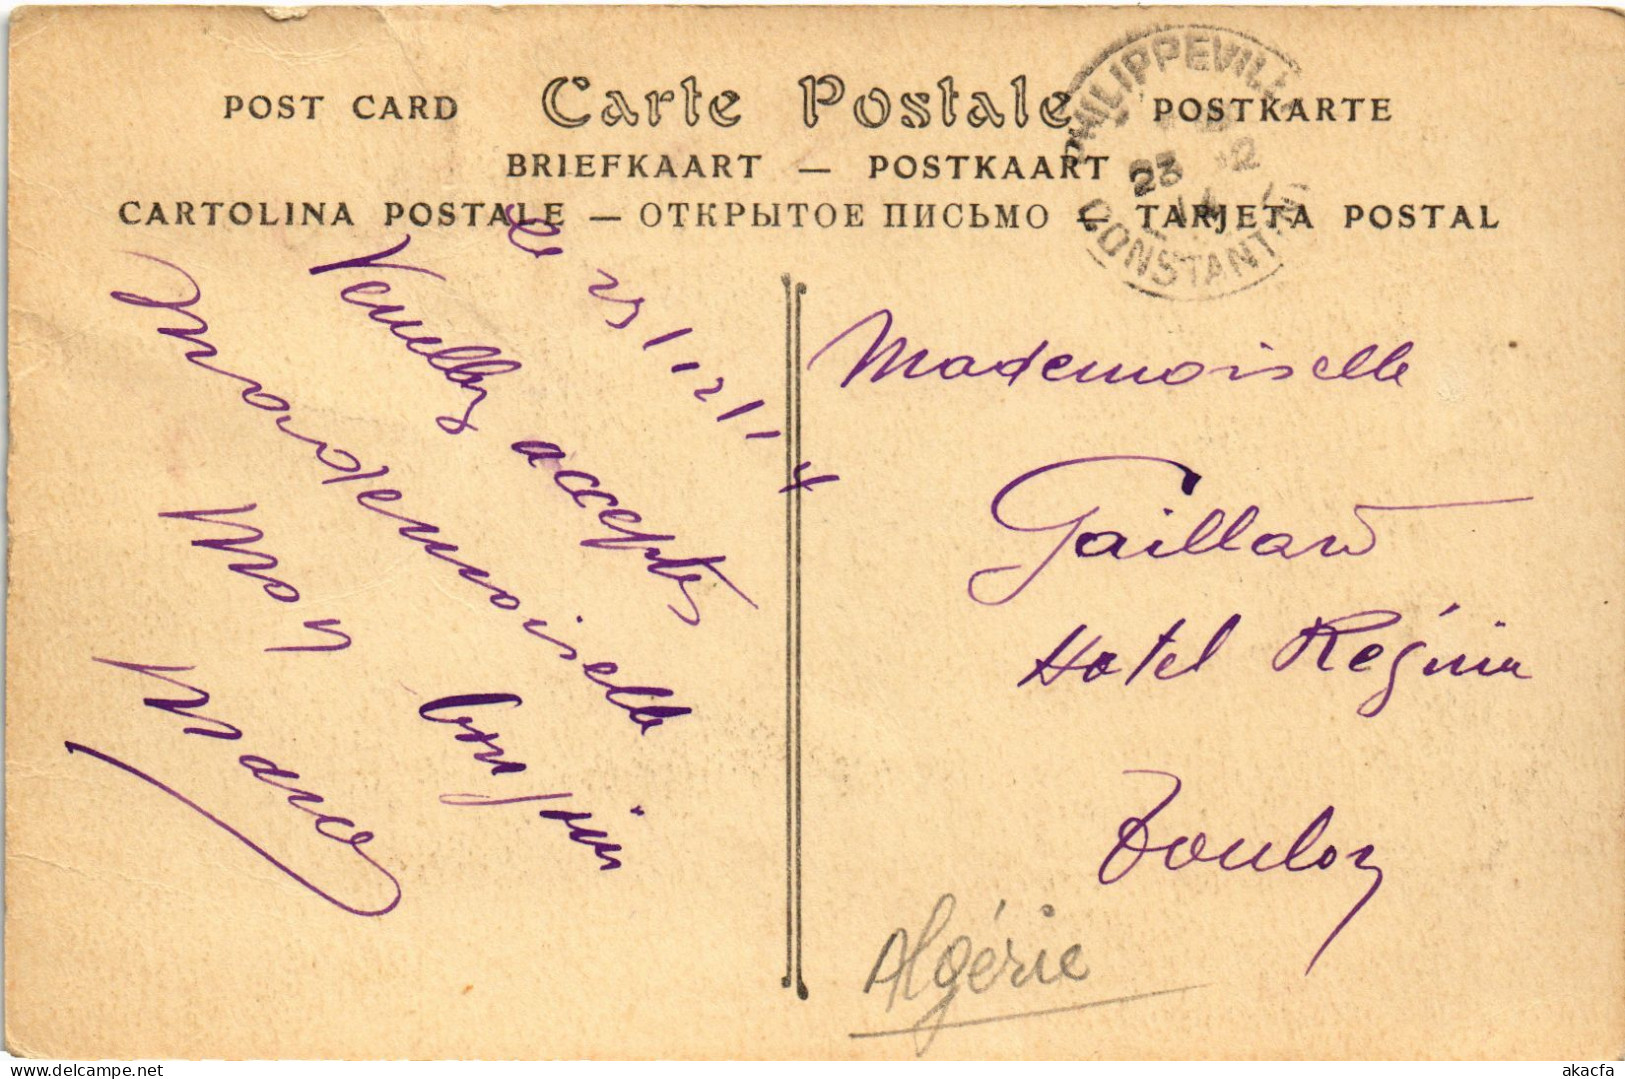 POST CARD Carte Postale POSTKARTE
BRIEFKAART — POSTKAART
CARTOLINA POSTALE — ОТКРЫТОЕ ПИСЬМО — TARJETA POSTAL
PHILIPPEVILLE
23 -2
CONSTANTINE
Le 23/12/14
Veuillez accepter
Mademoiselle
Mon bonjour
Marco
Mademoiselle
Gaillard
Hotel Régina
Toulon
Algérie
akacfa